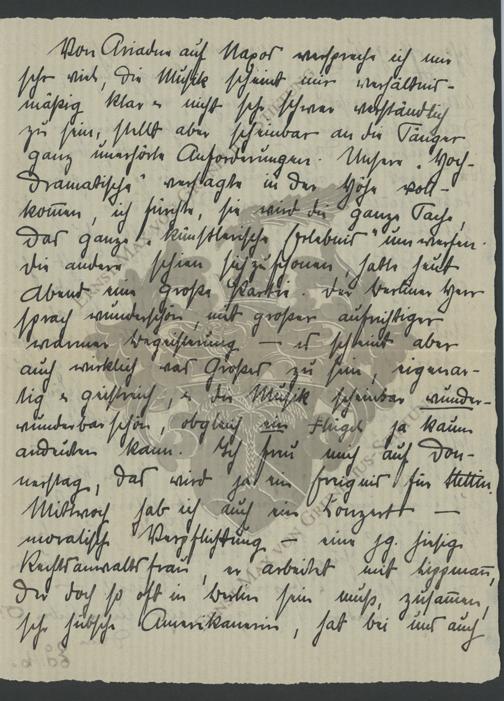 Von Ariadne auf Naxos verspreche ich mir
sehr viel, die Musik scheint mir verhältnis-
mäßig klar u nicht sehr schwer verständlich
zu sein, stellt aber scheinbar an die Sänger
ganz unerhörte Anforderungen. Unsere "Hoch-
dramatische" versagte in der Höhe voll-
kom̅en, ich fürchte, sie wird die ganze Sache,
das ganze "künstlerische Erlebnis" umwerfen.
die andere schien sich zu schonen, hatte heut
Abend eine große Partie. Der Berliner Herr
sprach wunderschön, mit großer aufrichtiger
warmer Begeisterung — es scheint aber
auch wirklich was Großes zu sein, eigenar-
tig u geistreich, u die Musik scheinbar wunder-
wunderbar schön, obgleich ein Flügel ja kaum
andeuten kann. Ich freu mich auf Don-
nerstag, das wird ja ein Ereignis für Stettin
Mittwoch hab ich auch ein Konzert —
moralische Verpflichtung — eine jg. hiesige
Rechtsanwaltsfrau, er arbeitet mit Lippmann,
der doch so oft in Berlin sein muß, zusammen,
sehr hübsche Amerikanerin, hat bei uns auch